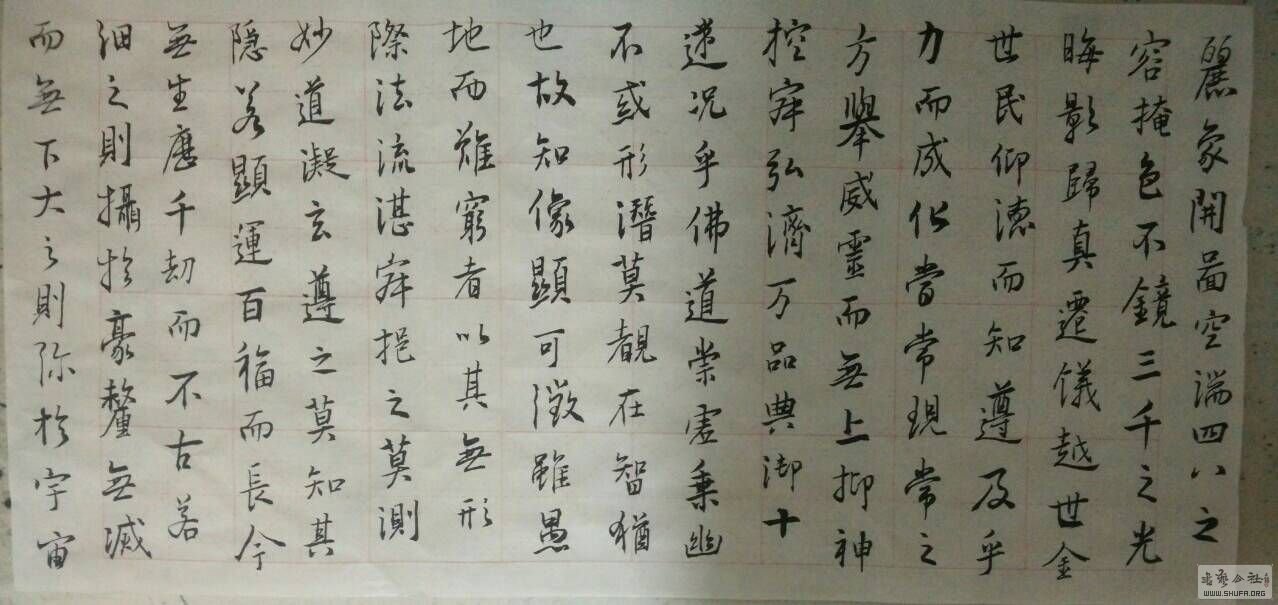 麗象開啚空端四八之
容掩色不鏡三千之光
晦影歸真遷儀越世金
世民仰德而知遵及乎
力而成化當常現常之
方舉威靈而無上抑神
控寂弘濟万品典御十
況乎佛道崇虛乗幽
不惑形潛莫覩在智猶
也故知像顯可徵雖愚
地而難窮者以其無形
際法流湛寂挹之莫測
妙道凝玄遵之莫知其
隱若顯運百福而長今
無生歷千劫而不古若
細之則攝於豪釐無滅
而無下大之則弥於宇宙
书艺公社
WWW.SHUFA.ORG